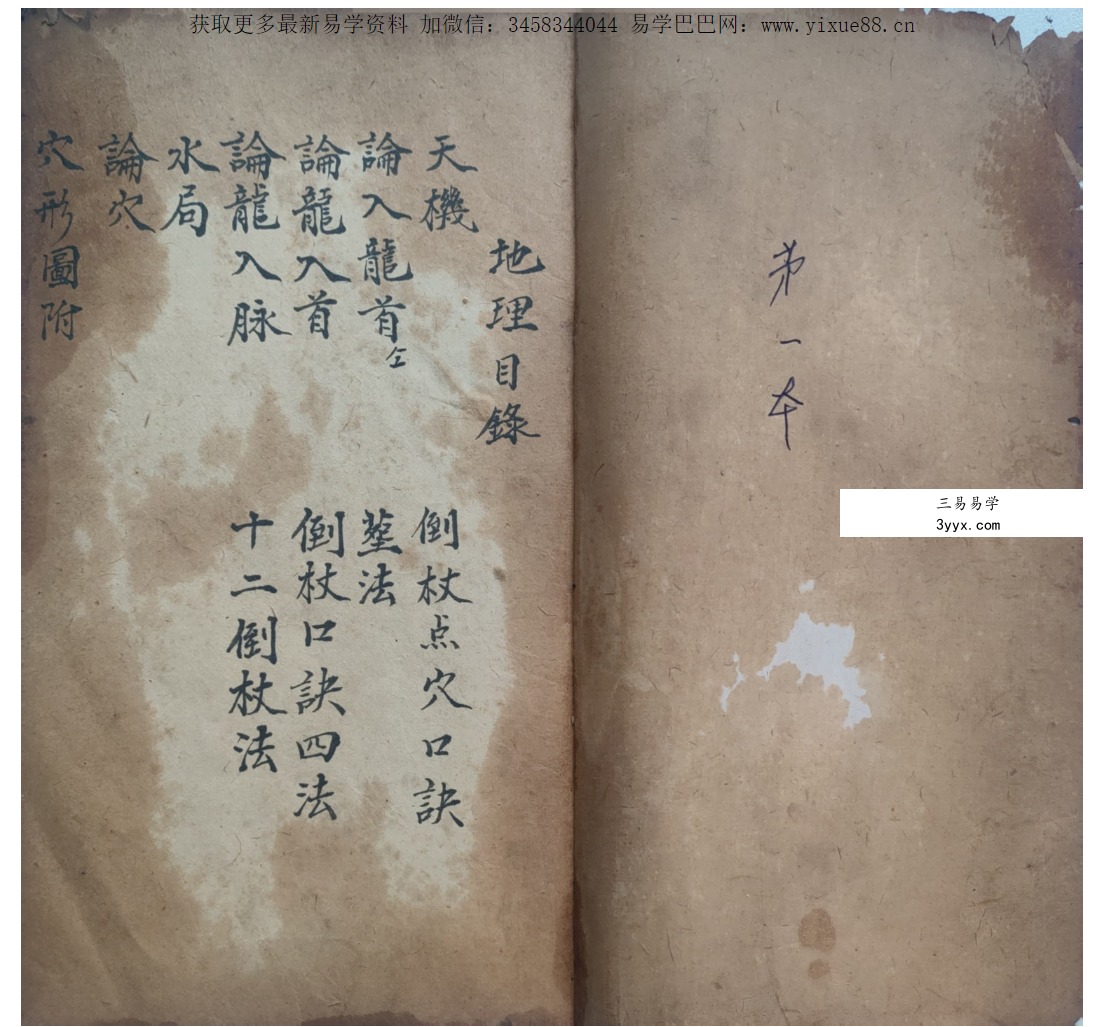 获取更多最新易学资料 加微信：3458344044 易学巴巴网：www.yixue88.cn
第一本
三易易学
3yyx.com
地理目錄
天機
倒杖点穴口訣
論入龍首仝
塟法
論龍入首
倒杖口訣四法
論龍入脉
十二倒杖法
水局
論穴
穴形圖附